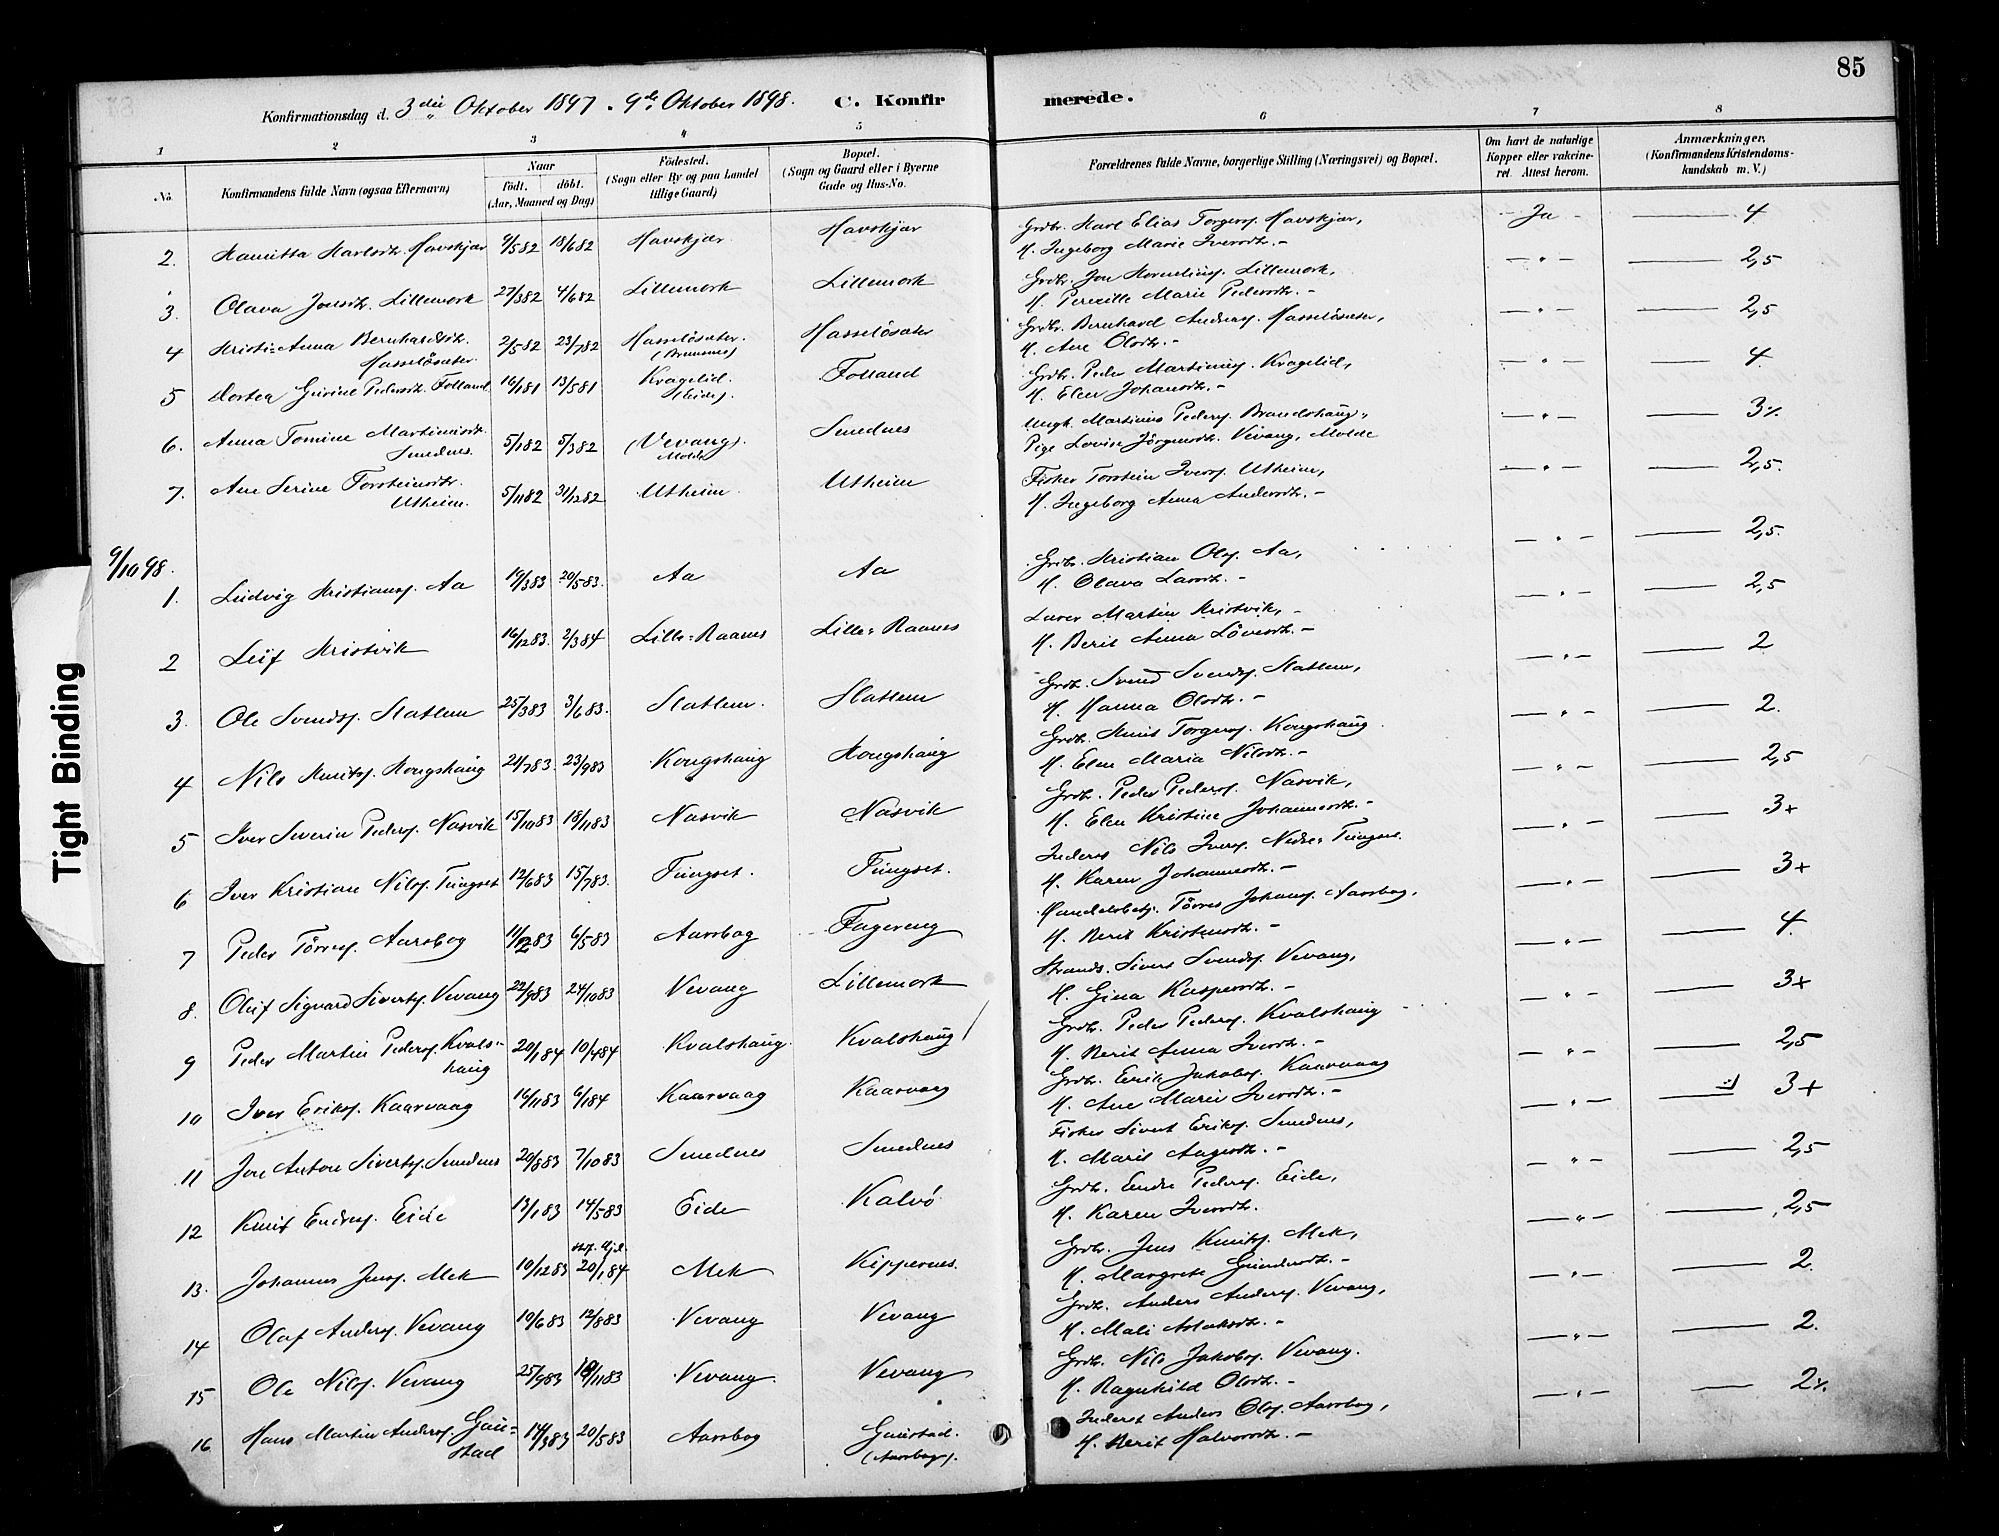 85
Konfirmationsdag d. 3die Oktober 1897. 9de Oktober 1898. C. Konfirmerede.
1 2 3 4 5 6 7 8
No. Konfirmandens fulde Navn (ogsaa Efternavn) Naar födt. döbt. (Aar, Maaned og Dag) Födested. (Sogn eller By og paa Landet tillige Gaard) Bopæl. (Sogn og Gaard eller i Byerne Gade og Hus-No. Forældrenes fulde Navne, borgerlige Stilling (Næringsvei) og Bopæl. Om havt de naturlige Kopper eller vaccineret. Attest herom. Anmærkninger. (Konfirmandens Kristendomskundskab m. V.)
2. Karlsdtr. Havskjær 9/5 82 18/6 82 Havskjær Havskjær Grdbr. Karl Elias Torgers. Havskjær, Ja 4
H. Ingeborg Marie Iversdtr.
3. Olava Jonsdtr. Lillemork 27/3 82 4/6 82 Lillemork Lillemork Grdbr. Jon Lillemork, 2,5
H. Pernille Marie Pedersdtr.
4 Kristi-Anna Bernhardsdtr. Hasselösæter 2/5 82 23/7 82 Hasselösæter Hasselösæter Grdbr. Bernhard Anders. Hasselösæter, 2,5
H. Ane Olsdtr.
5 Dortea Gurine Pedersdtr. Folland 16/1 81 13/5 81 Kragelid. (Eide). Folland Grdbr. Peder Martinus. Kragelid, 4
H. Elen Johansdtr.
6. Anna Tomine Martinusdtr. Smednes. 5/1 82 5/3 82 (Vevang). Molde Smednes Ungk. Martinus Peders. Brandshaug, 3%
Pige Lovise Jörgensdtr. Vevang, Molde
7. Ane Serine Torsteinsdtr. Utheim. 5/11 82 31/12 82 Utheim Utheim Fisker Torstein Ivers. Utheim, 2,5.
H. Ingeborg Anna Andersdtr.
9/10 98.
1. Ludvig Kristians. Aa 19/3 83 20/5 83. Aa Aa Grdbr. Kristian Ols. Aa, 2,5
H. Olava Larsdtr.
2 Leif Kristvik 16/12 83. 2/3 84 Lille-Raanes Lille-Raanes Lærer Martin Kristvik, 2,5
H. Berit Anna
3. Ole Svends. Slatlem 25/3 83 3/6 83. Slatlem. Slatlem Grdbr. Svend Svends. Slatlem, 2
H. Hanna Olsdtr.
4 Nils Knuts. Kongshaug 24/7 83. 23/9 83 Kongshaug Kongshaug Grdbr. Knut Torgers. Kongshaug. 2.
H. Elen Maria Nilsdtr.
5 Iver Severin Peders. Nasvik 15/10 83 18/11 83 Nasvik Nasvik Grdbr. Peder Peders. Nasvik, 2,5
H. Elen Kristine Johannesdtr.
6 Iver Kristian Nils. Tungset 12/6 83 15/7 83. Tungset. Tungset. Inderst Nils Ivers. Nedre-Tungset. 3+
H. Karen Johannesdtr.
7 Peder Törres. Aarsbog 11/2 83 6/5 83 Aarsbog Fagereng Handelsbetj. Törres Johans. Aarsbog, 3+
H. Berit Kristensdtr.
8. Oluf Sigvard Siverts. Vevang 22/9 83 24/10 83 Vevang Lillemork Strands. Sivert Svends. Vevang, 4.
H. Gina Kaspersdtr.
9 Peder Martin Peders. Kvalshaug 20/1 84 10/4 84 Kvalshaug. Kvalshaug Grdbr. Peder Peders. Kvalshaug 3+
H. Berit Anna Iversdtr.
10 Iver Eriks. Kaarvaag 16/11 83 6/1 84 Kaarvaag Kaarvaag Grdbr. Erik Jakobs. Kaarvaag 2,5
H. Ane Marie Iversdtr.
11 Jon Anton Siverts. Smednes 20/8 83 7/10 83 Smednes Smednes Fisker Sivert Eriks. Smednes, 3+
H. Marit Aagesdtr.
12 Knut Endres. Eide 13/1 83 14/5 83 Eide Kalvö Grdbr. Endre Peders. Eide, 2,5
H. Karen Iversdtr.
13. Johannes Jens. Mek 10/12 83 20/1 84 Mek Kippernes. Grdbr. Jens Knuts. Mek, 2,5
H. Margrete Gundersdtr.
14 Olaf Anders. Vevang 10/6 83 12/8 83 Vevang Vevang Grdbr. Anders Anders. Vevang, 2.
H. Mali Aslaksdtr.
15 Ole Nils. Vevang 25/9 83 18/11 83 Vevang. Vevang Grdbr. Nils Jakobs. Vevang. 2.
H. Ragnhild Olsdtr.
16 Hans Martin Anders. Gaustad 14/3 83 20/5 83 Aarsbog Gaustad. (Aarsbog). Inderst Anders Ols. Aarsbog, 2%.
H. Berit Halvorsdtr.
Tight Binding